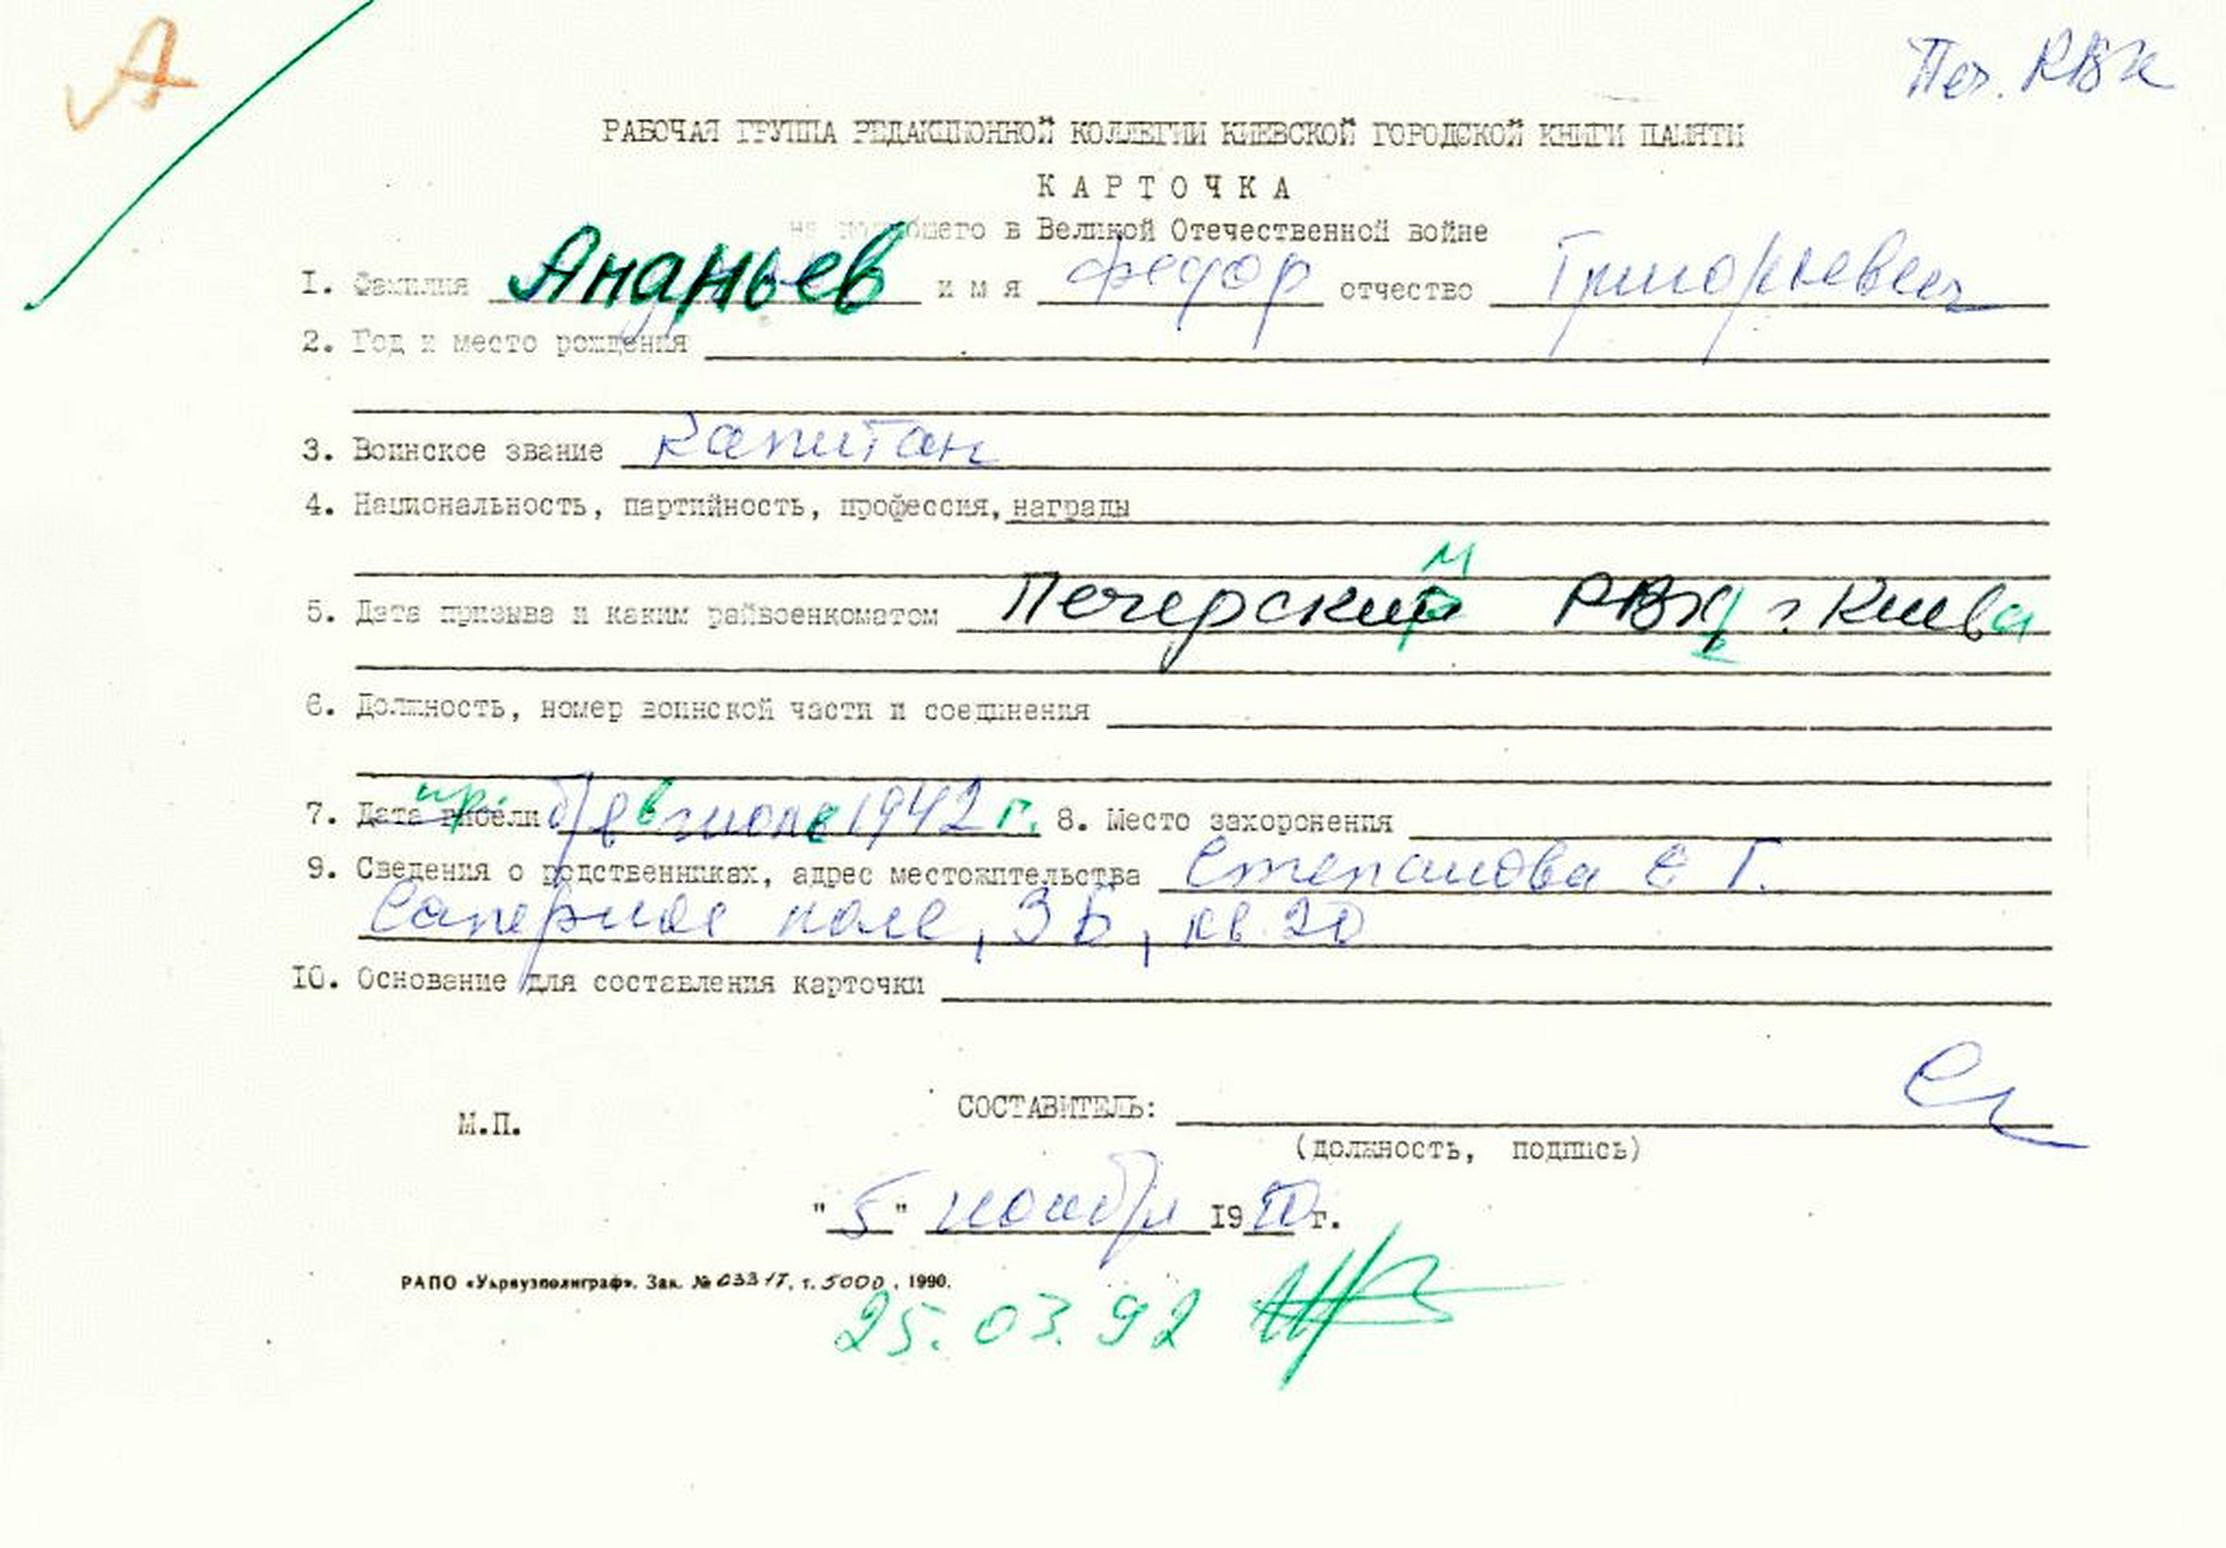 А
Печ. РВК
РАБОЧАЯ ГРУППА РЕДАКЦИОННОЙ КОЛЛЕГИИ КИЕВСКОЙ ГОРОДСКОЙ КНИГИ ПАМЯТИ
КАРТОЧКА
на погибшего в Великой Отечественной войне
I. Фамилия Ананьев имя Федор отчество Григорьевич
2. Год и место рождения
3. Воинское звание капитан
4. Национальность, партийность, профессия, награды
м
5. Дата призыва и каким райвоенкоматом Печерский РВК г. Киева
6. Должность, номер воинской части и соединения
7. Дата гибели б/в в июле 1942 г. 8. Место захоронения
9. Сведения о родственниках, адрес местожительства Степанова Е Г.
Саперное поле, 3Б, кв. 20
10. Основание для составления карточки
М.П. СОСТАВИТЕЛЬ:
(должность, подпись)
"5" ноября 1990 г.
РАПО «Укрвузполиграф». Зак. № 0331Т, т. 5000, 1990.
25.03.92